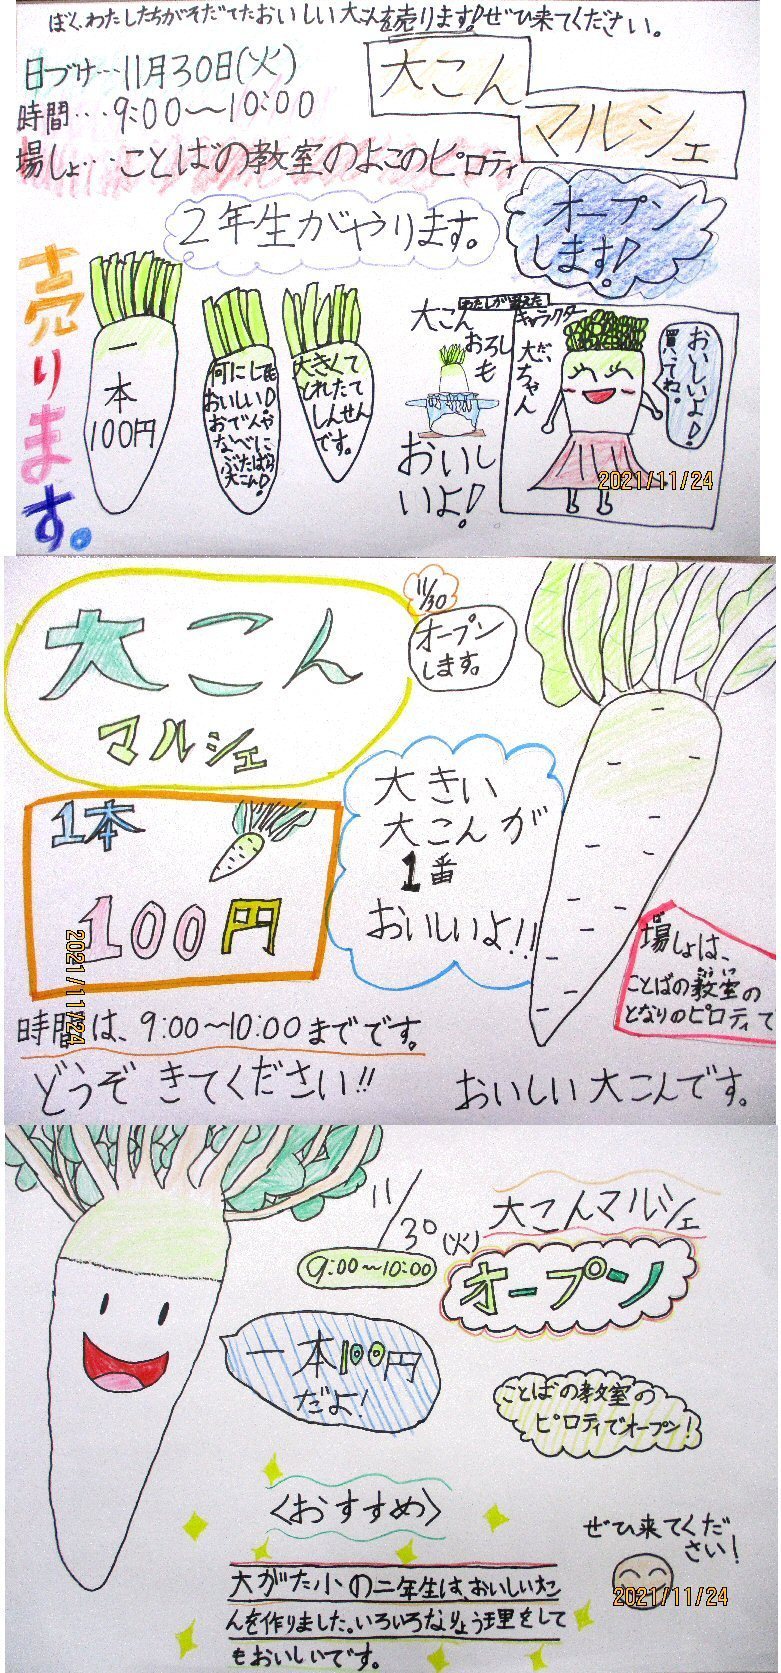 ぼく、わたしたちがそだてたおいしい大こんを売ります!ぜひ来てください。
日づけ…11月30日(火)
時間…9:00〜10:00
場しょ…ことばの教室のよこのピロティ
大こん
マルシェ
2年生がやります。
オープン
します!
売ります。
一
本
100円
何にしても
おいしい!
おでんや
なべに
ぶたばら
大こん!
大きくて
とれたて
しんせん
です。
大こん
おろし
も
おいし
いよ!
わたしが考えた
キャラクター
大ちゃん
だい
おいしいよ!
買ってね。
2021/11/24
大こん
マルシェ
11/30
オープン
します。
1本
100円
大きい
大こんが
1番
おいしいよ!!
場しょは、
ば
ことばの教室の
となりのピロティて
時間は、9:00〜10:00までです。
どうぞ きてください!!
おいしい大こんです。
2021/11/24
11/30(火)
9:00〜10:00
大こんマルシェ
オープン
一本100円
だよ!
ことばの教室の
ピロティでオープン!
〈おすすめ〉
大がた小の二年生は、おいしい大こ
んを作りました。いろいろなりょう理をして
もおいしいです。
ぜひ来てくだ
さい!
2021/11/24